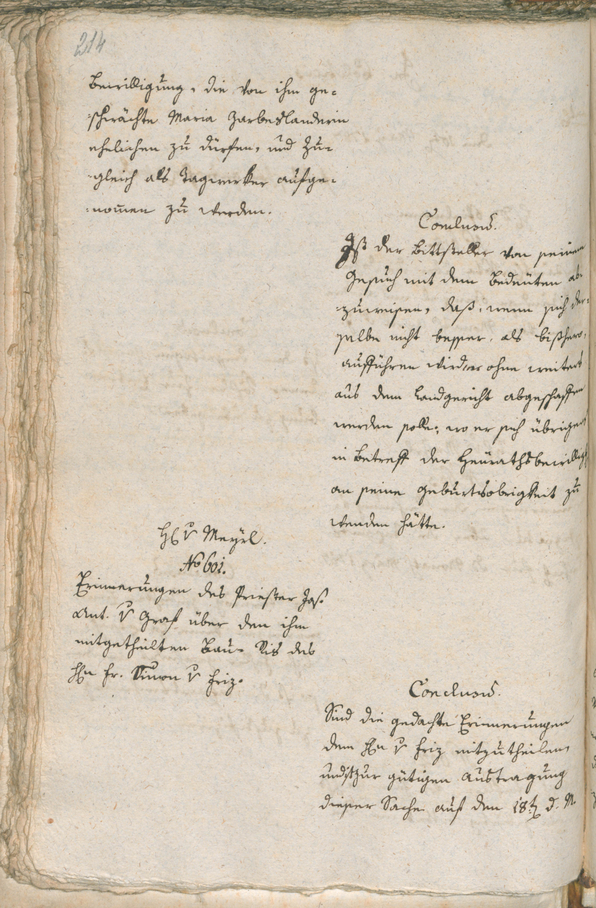 214
Bewilligung, die von ihm ge-
schwächte Maria Zarbeslanderin
ehelichen zu dürfen, und zu-
gleich als Tagwerker aufge-
nommen zu werden.
Conclusum.
Ist der Bittsteller von seinem
Gesuch mit dem Bedeuten ab-
zuweisen, daß, wenn sich der-
selbe nicht besser, als bißhero,
aufführen wird, er ohne weiters
aus dem Landgericht abgeschaffen
werden solle; wo er sich übrigens
in Betreff der Heurathsbewillig
an seine Geburtsobrigkeit zu
wenden hätte.
H v Meyrl.
No 601.
Erinnerungen des Priester Jos.
Ant. v Graf über den ihm
mitgetheilten Bau-Riß des
Hn Fr. Simon v Friz.
Conclusum.
Sind die gedachte Erinnerungen
dem Hn v Friz mitzutheilen,
und zur gütigen Austragung
dieser Sache auf den 18t d. M